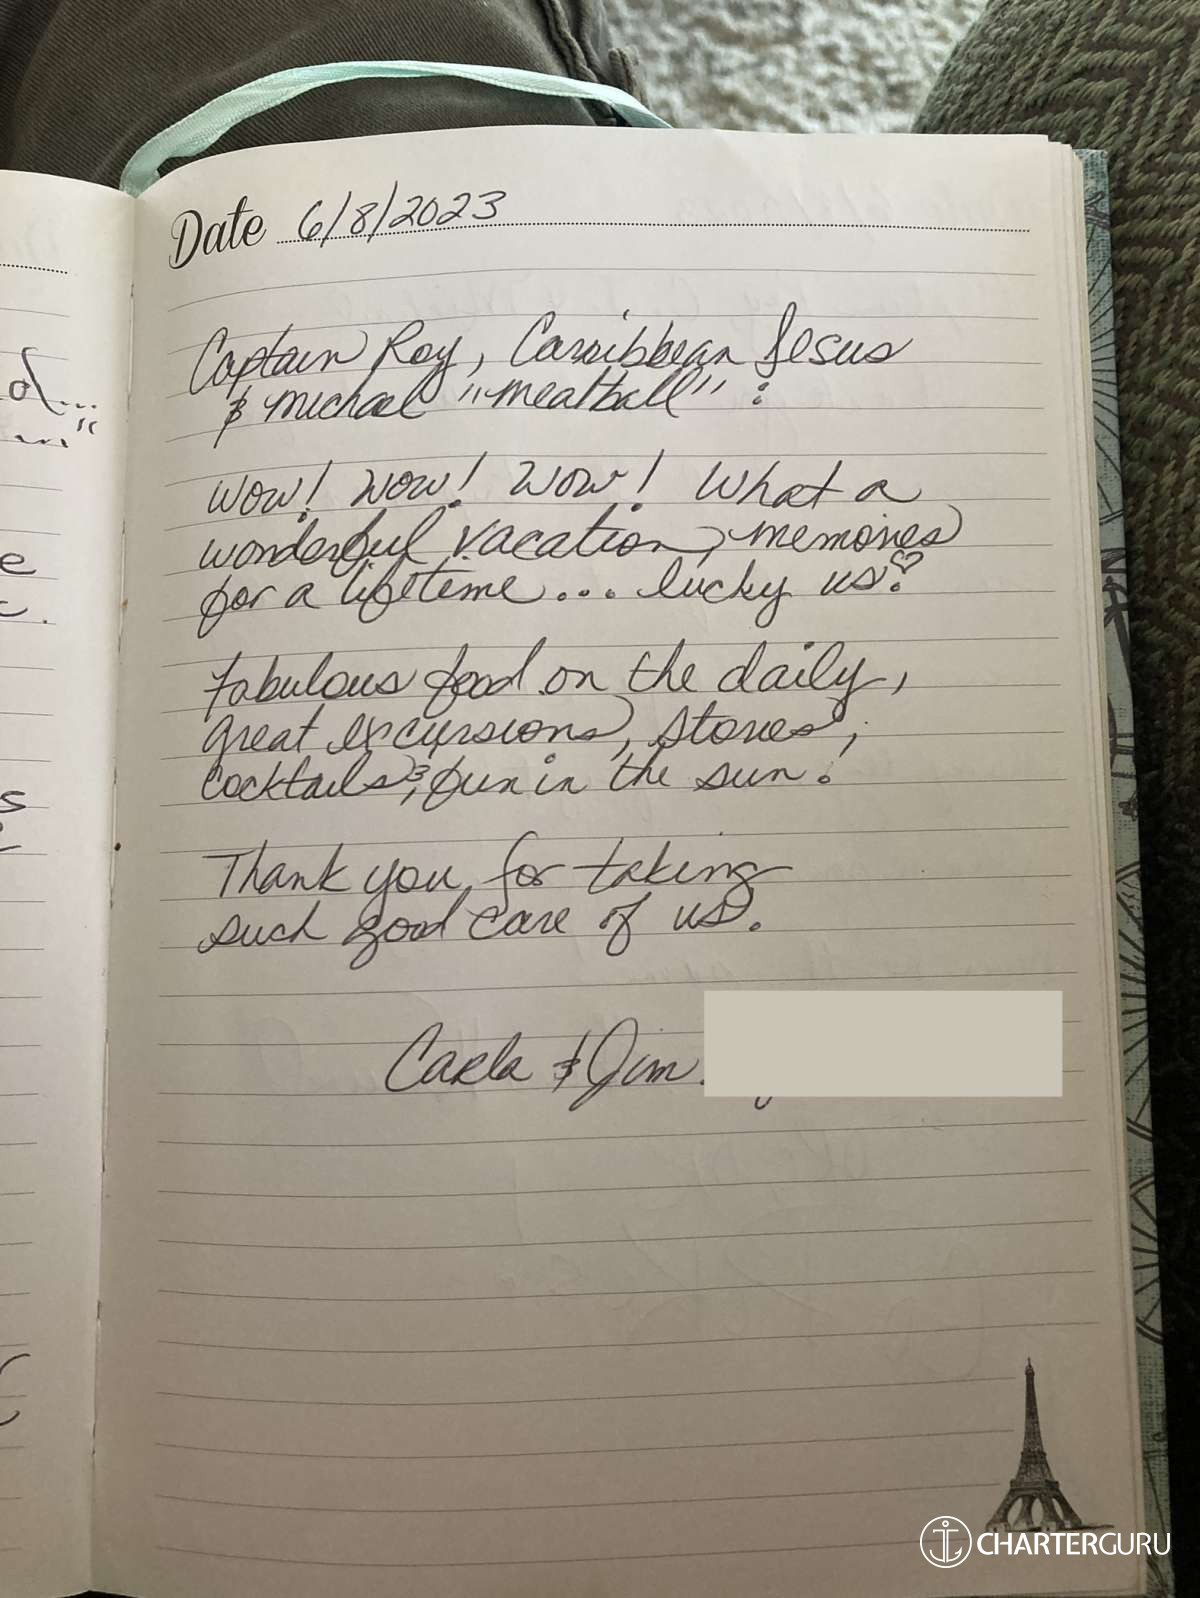 Date 6/8/2023
Captain Roy, Carribbean Jesus
& Michael "Meatball" :
Wow! Wow! Wow! What a
wonderful vacation, memories
for a lifetime... lucky us!
Fabulous food on the daily,
great excursions, stories,
cocktails, & fun in the sun!
Thank you for taking
such good care of us.
Carla & Jim
CHARTERGURU